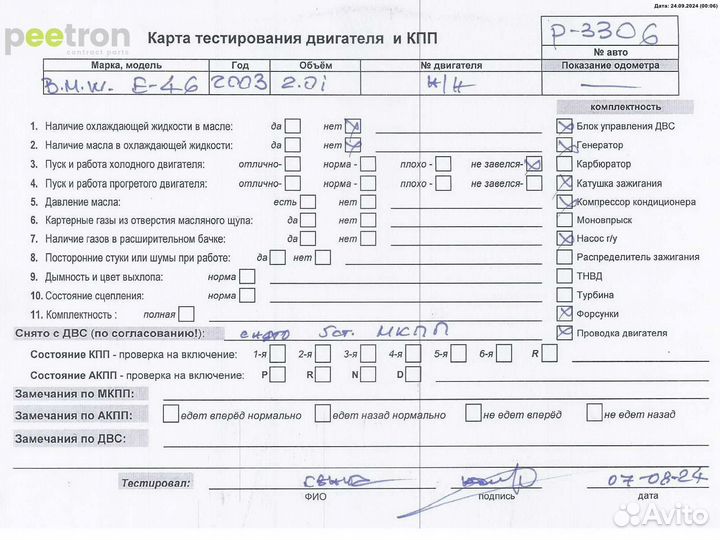 Дата: 24.09.2024 (00:06)
peetron
contract parts
Карта тестирования двигателя и КПП
P-3306
№ авто
Марка, модель Год Объём № двигателя Показание одометра
B.M.W. E-46 2003 2.0i н/н —
комплектность
1. Наличие охлаждающей жидкости в масле: да нет
Блок управления ДВС
2. Наличие масла в охлаждающей жидкости: да нет
Генератор
3. Пуск и работа холодного двигателя: отлично- норма - плохо - не завелся-
Карбюратор
4. Пуск и работа прогретого двигателя: отлично- норма - плохо - не завелся-
Катушка зажигания
5. Давление масла: есть нет
Компрессор кондиционера
6. Картерные газы из отверстия масляного щупа: да нет
Моновпрыск
7. Наличие газов в расширительном бачке: да нет
Насос г/у
8. Посторонние стуки или шумы при работе: да нет
Распределитель зажигания
9. Дымность и цвет выхлопа: норма
ТНВД
10. Состояние сцепления: норма
Турбина
11. Комплектность : полная
Форсунки
Снято с ДВС (по согласованию!): снято 5ст. МКПП
Проводка двигателя
Состояние КПП - проверка на включение: 1-я 2-я 3-я 4-я 5-я 6-я R
Состояние АКПП - проверка на включение: P R N D
Замечания по МКПП:
Замечания по АКПП: едет вперёд нормально едет назад нормально не едет вперёд не едет назад
Замечания по ДВС:
Тестировал: 07-08-24
ФИО подпись дата
Avito